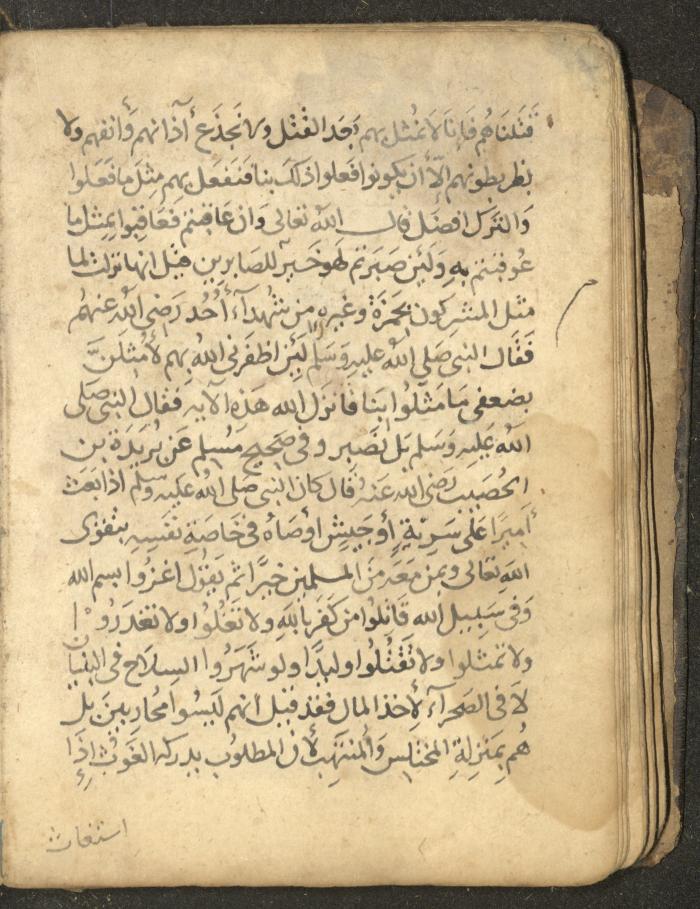 قتلناهم فإنا لا نمثل بهم بعد القتل ولا نجذع آذانهم وأنفهم ولا
نظر بطونهم إلا أن يكونوا فعلوا ذلك بنا فنفعل بهم مثل ما فعلوا
والترك افضل قال الله تعالى وان عاقبتم فعاقبوا بمثل ما
عوقبتم به ولئن صبرتم لهو خير للصابرين قيل انها نزلت لما
مثل المشركون بحمزة وغيره من شهدآء أُحُد رضي الله عنهم
فقال النبي صلى الله عليه وسلم لئن اظفرني الله بهم لأمثلنّ
بضعفي ما مثلوا بنا فانزل الله هذه الآية فقال النبي صلى
الله عليه وسلم بل نصبر وفي صحيح مسلم عن بريدة بن
الحصيب رضي الله عنه قال كان النبي صلى الله عليه وسلم اذا بعث
أميرا على سرية أو جيش اوصاه في خاصة نفسه بتقوى
الله تعالى وبمن معه من المسلمين خيرا ثم يقول اغزوا بسم الله
وفي سبيل الله قاتلوا من كفر بالله ولا تغلوا ولا تغدروا
ولا تمثلوا ولا تقتلوا وليدًا ولو شهروا السلاح في البنيان
لا في الصحرآء لأخذ المال فقد قيل انهم ليسوا محاربين بل
هم بمنزلة المختلس والمنتهب لأن المطلوب يدركه الغوث إذا
استغاث